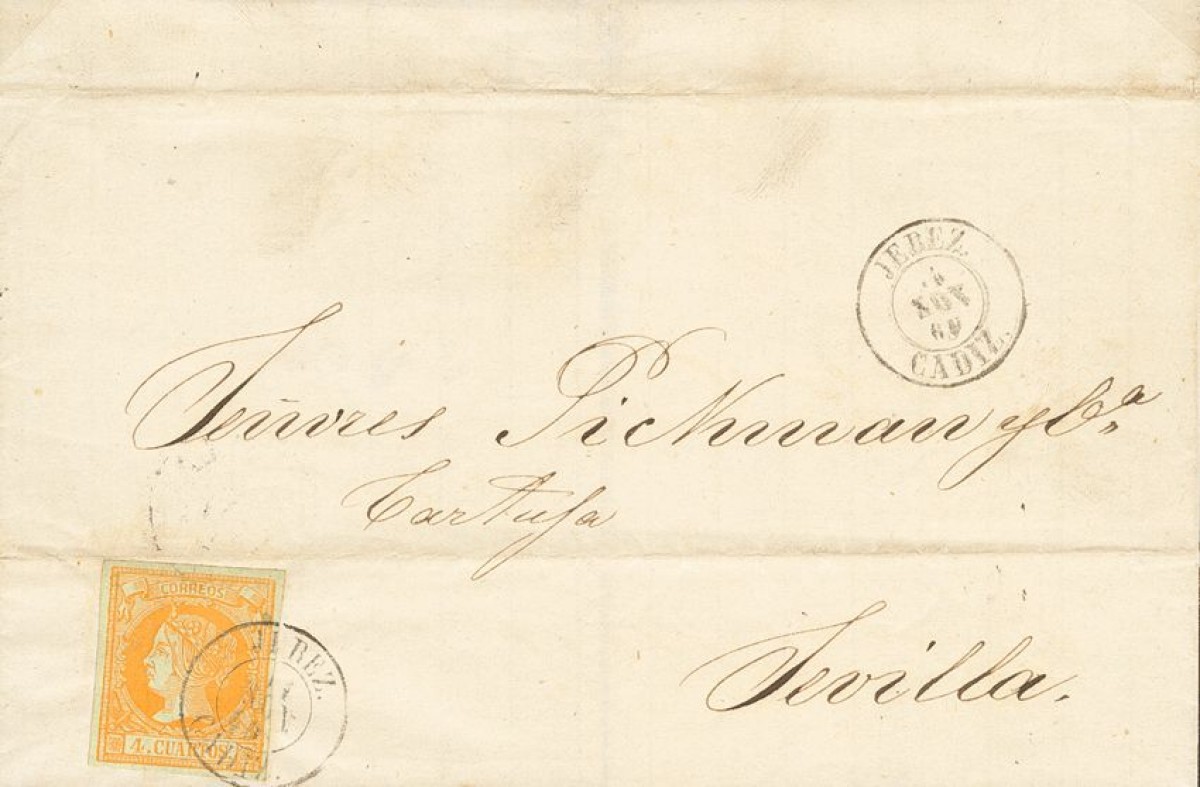 JEREZ
NOV
CADIZ.
Señores Pickman y Cª
Cartuja
Sevilla.
CORREOS
4. CUARTOS
JEREZ.